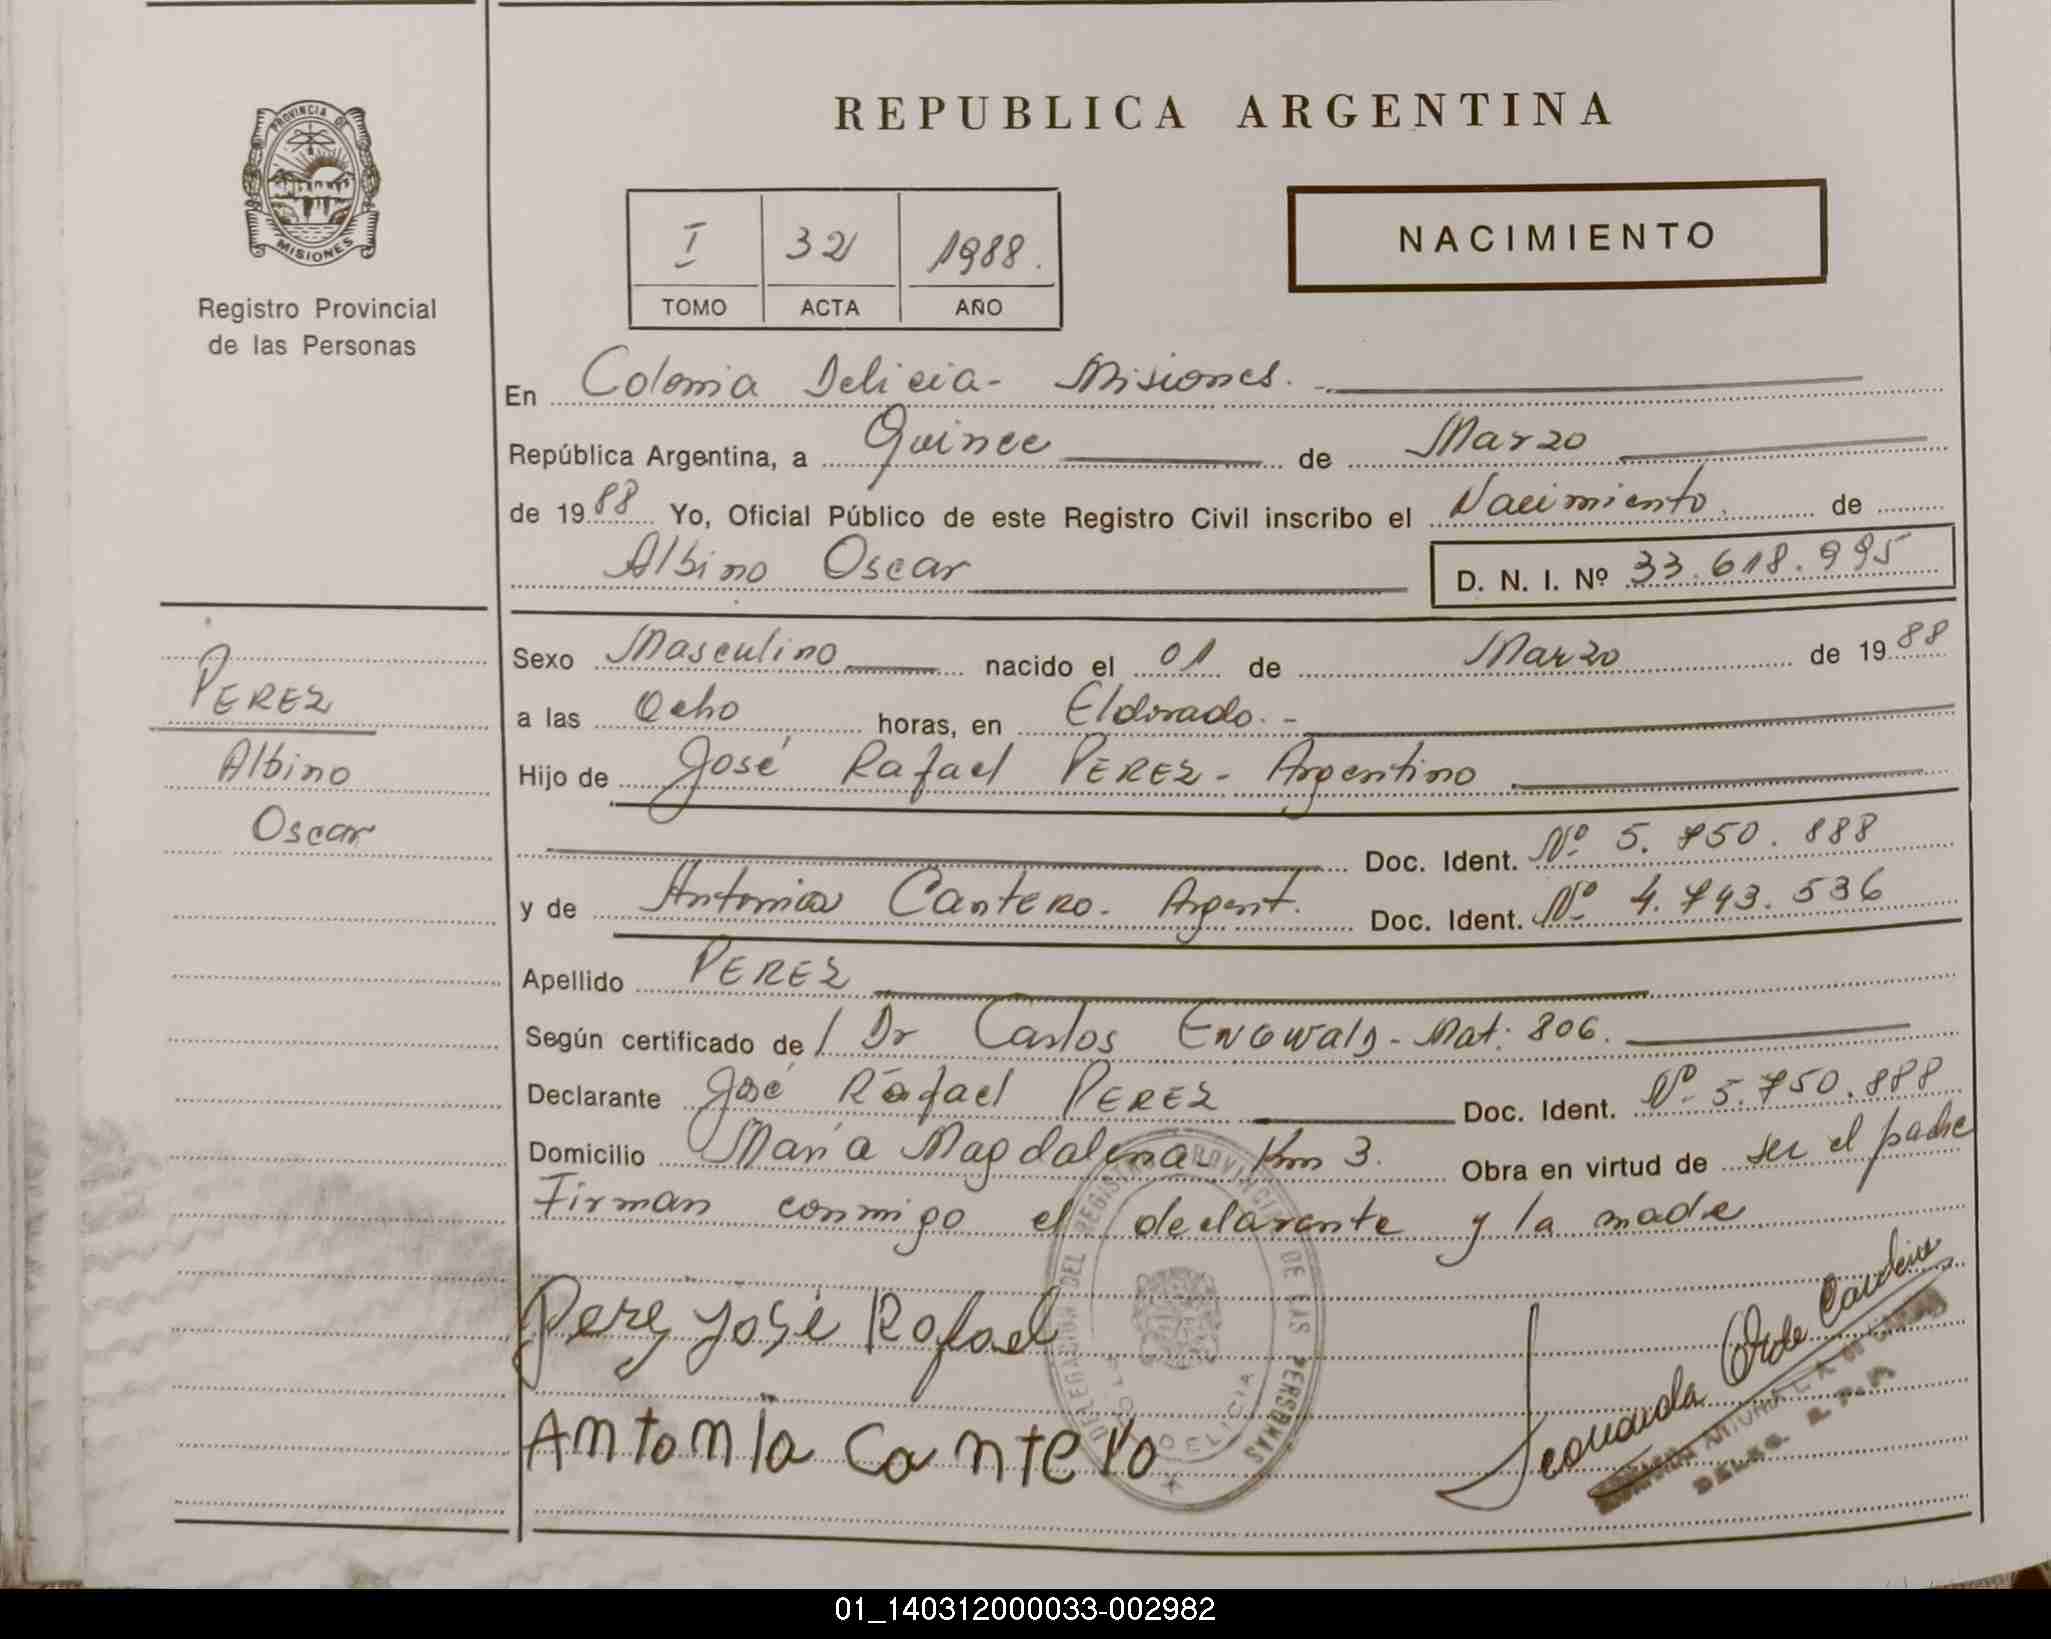 PROVINCIA DE
MISIONES
Registro Provincial
de las Personas
REPUBLICA ARGENTINA
I 32 1988.
TOMO ACTA AÑO
NACIMIENTO
En Colonia Delicia - Misiones. -
República Argentina, a Quince de Marzo
de 1988 Yo, Oficial Público de este Registro Civil inscribo el Nacimiento. de
Albino Oscar D. N. I. Nº 33.618.995
PEREZ
Albino
Oscar
Sexo Masculino nacido el 01 de Marzo de 1988
a las Ocho horas, en Eldorado. -
Hijo de José Rafael PEREZ - Argentino
Doc. Ident. Nº 5.750.888
y de Antonia Cantero - Argent. Doc. Ident. Nº 4.743.536
Apellido PEREZ
Según certificado de / Dr Carlos Engwald - Mat: 806.
Declarante José Rafael PEREZ Doc. Ident. Nº 5.750.888
Domicilio María Magdalena - Km 3. Obra en virtud de ser el padre
Firman conmigo el declarante y la madre
Perez José Rafael
Antonia Cantero
DELEGACION DEL REGISTRO PROVINCIAL DE LAS PERSONAS
DELICIA
DELEG. R. P. P.
01_140312000033-002982